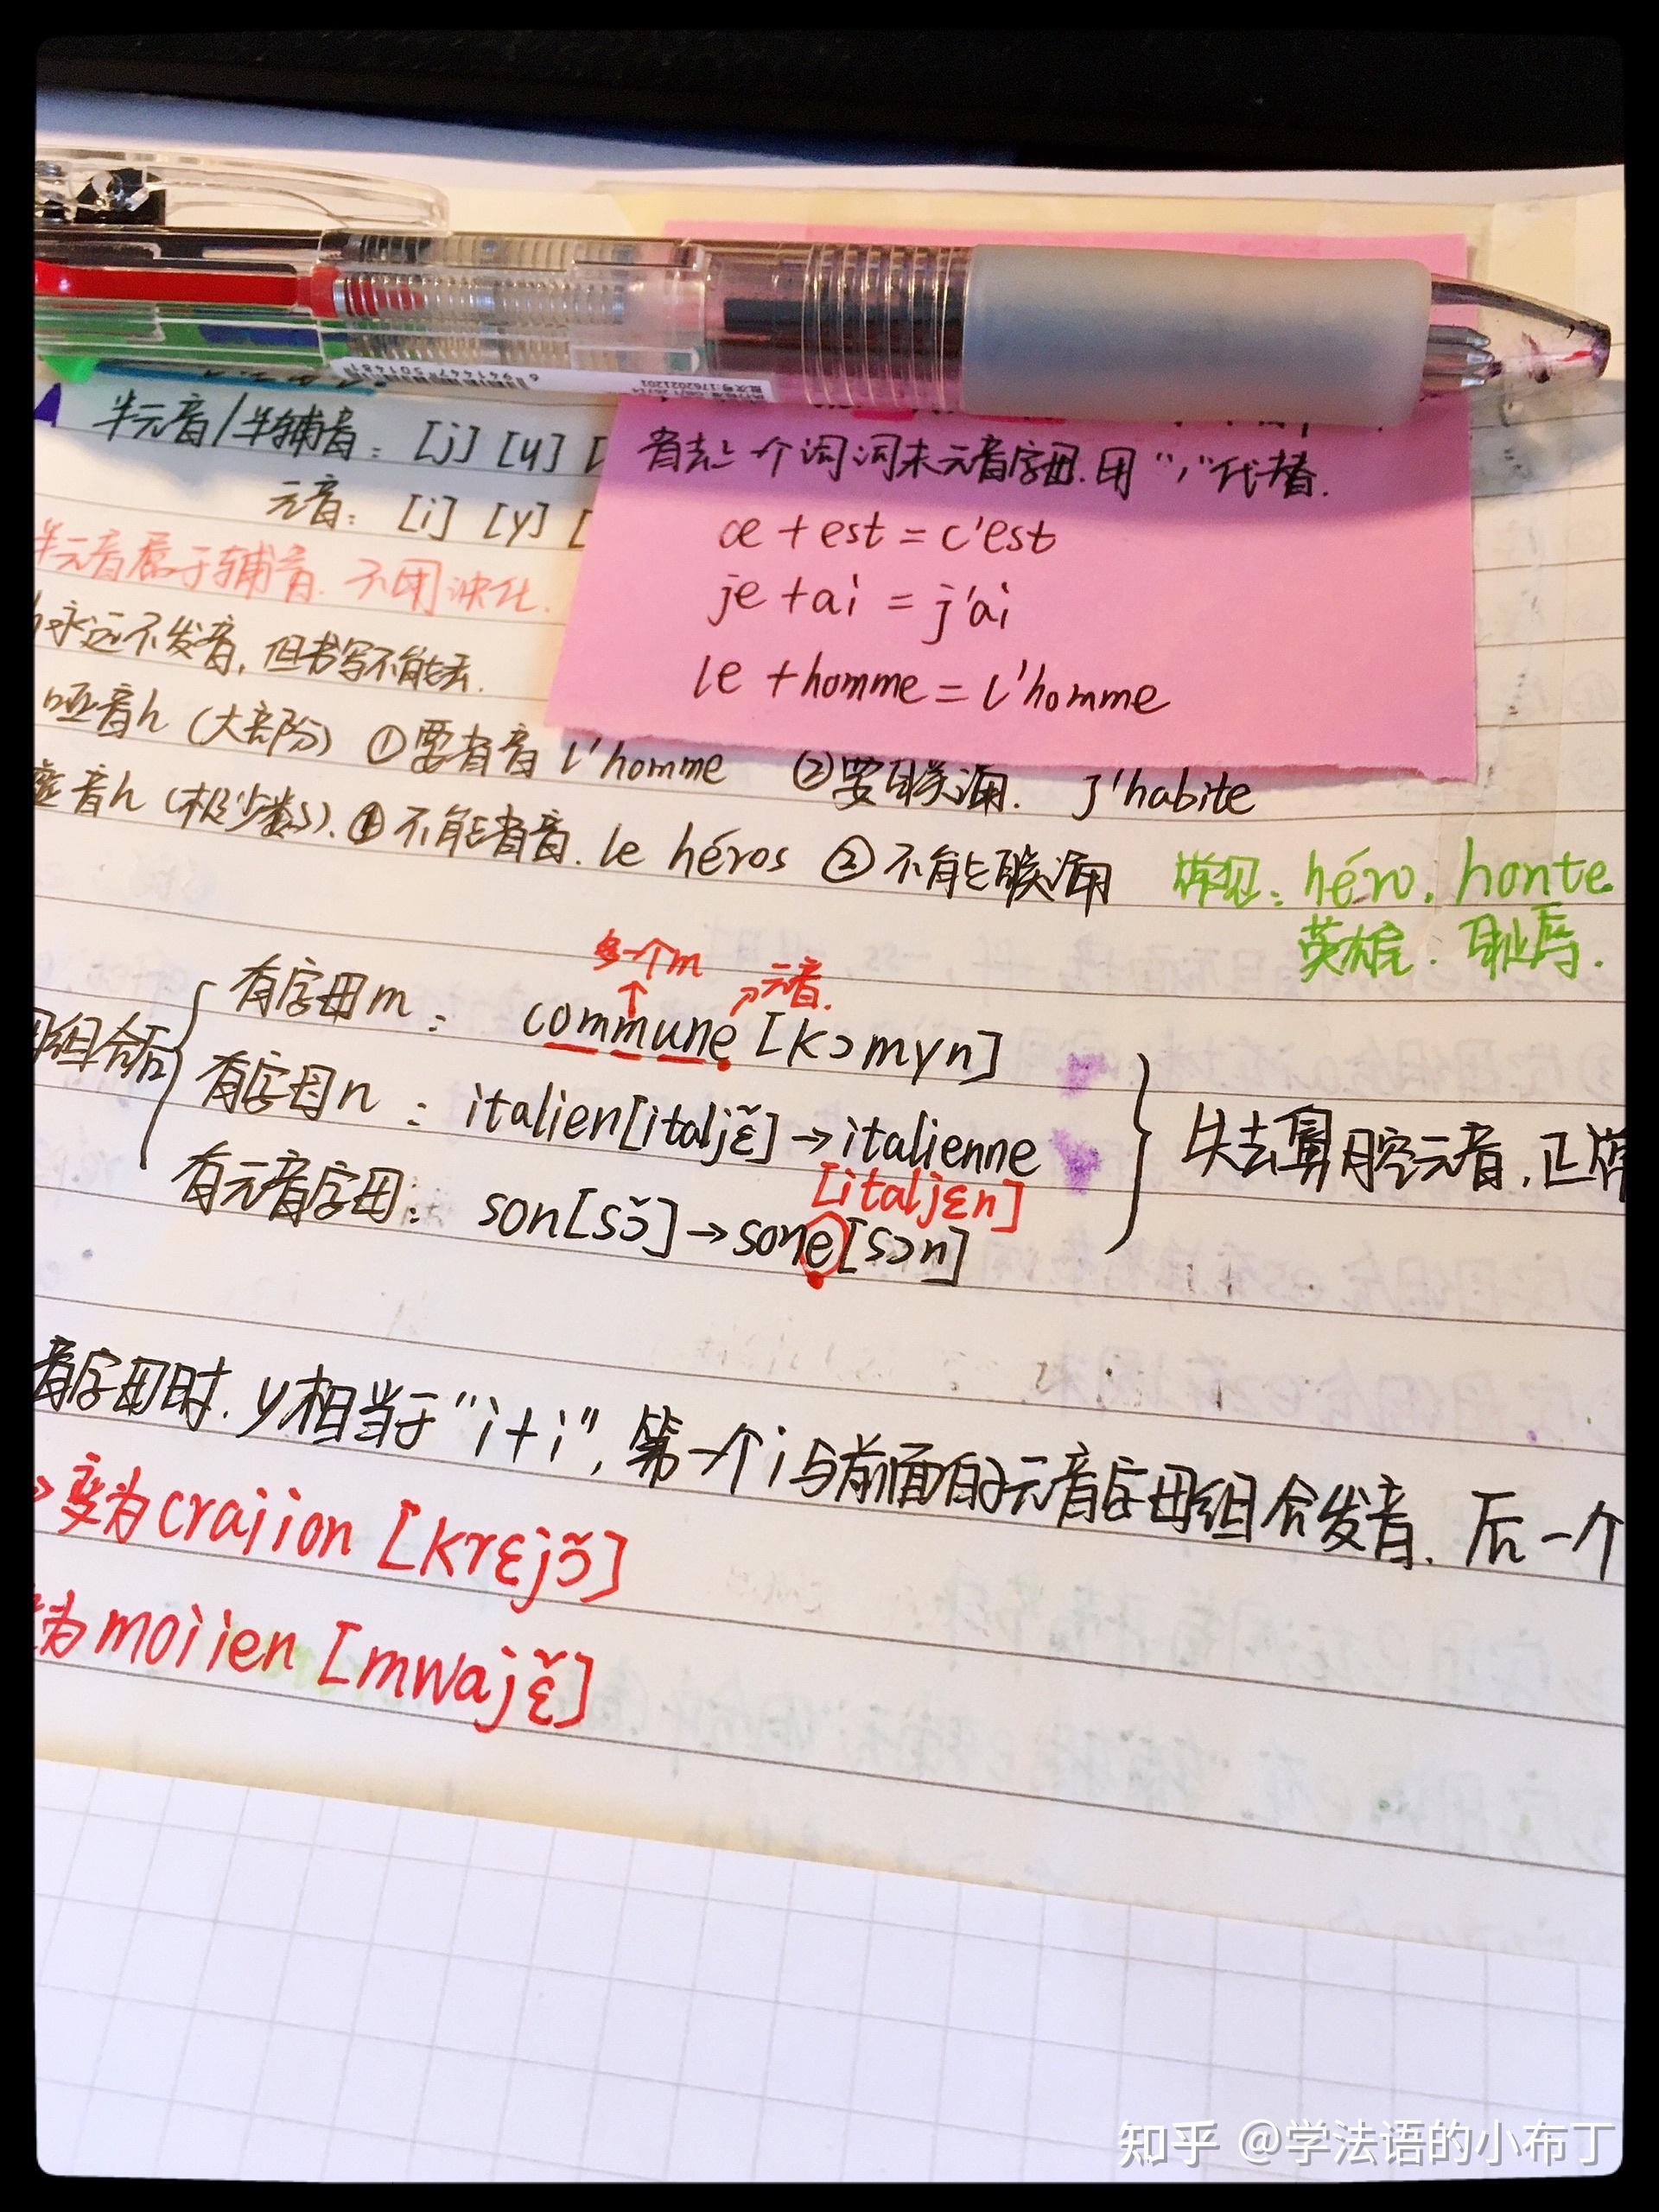 半元音/半辅音: [j] [ɥ] [
元音: [i] [y] [
半元音属于辅音.不用浊化.
h永远不发音,但书写不能丢.
省去上一个词词末元音字母.用“ , ”代替.
ce + est = c'est
je + ai = j'ai
le + homme = l'homme
哑音h (大部分) ①要省音 l'homme ②要联诵. j'habite
嘘音h (极少数). ①不能省音. le héros ②不能联诵
常见: héro. honte.
英雄. 耻辱.
多一个m
元音.
母组合后
有字母m : commune [kɔmyn]
有字母n : italien [italjɛ̃] → italienne
[italjɛn]
有元音字母: son [sɔ̃] → sone [sɔn]
失去鼻腔元音,正常
音字母时. y相当于“i+i”, 第一个i与前面的元音字母组合发音. 后一个
→变为 craiion [krɛjɔ̃]
为 moiien [mwajɛ̃]
6 941447 501481
知乎 @学法语的小布丁